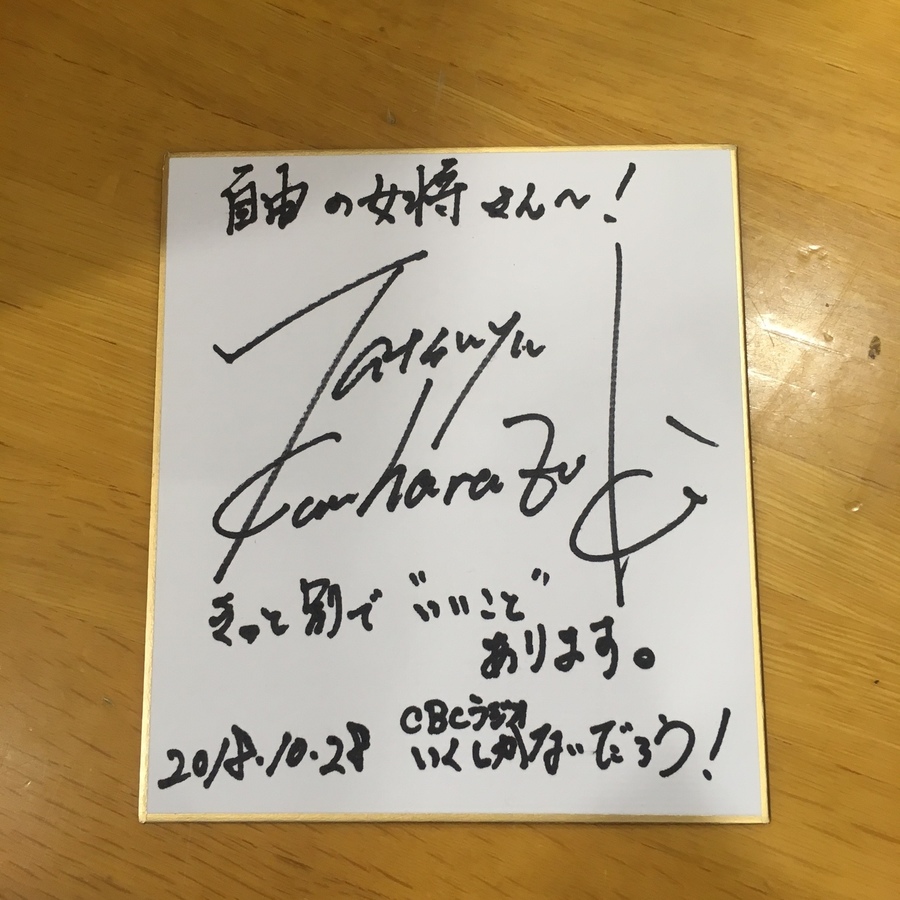 自由の女将さん〜!
Tatsuya
Kamiharazuki
きっと別で"いいこと"
あります。
CBCラジオ
2018.10.28 いくしかないだろう!